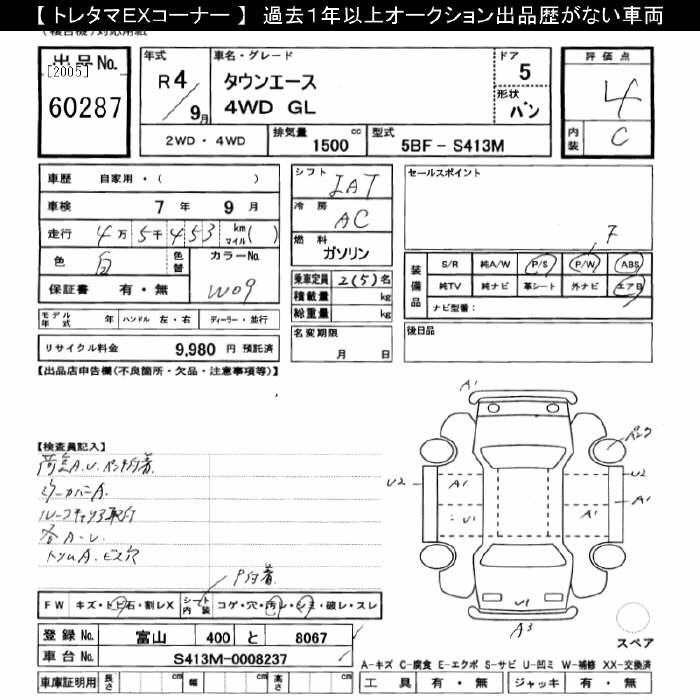 【 トレタマEXコーナー 】 過去１年以上オークション出品歴がない車両
出品No.
[2005]
60287
年式
R4／9月
車名・グレード
タウンエース
4WD GL
ドア
5
形状
バン
評価点
4
内装
C
2WD・4WD
排気量 1500 cc
型式 5BF－S413M
車歴 自家用・( )
車検 7 年 9 月
走行 4万5千453 km マイル( )
色 白
色替
カラーNo.
W09
保証書 有・無
モデル年式 年 ハンドル 左・右 ディーラー・並行
リサイクル料金 9,980 円 預託済
シフト
IAT
冷房
AC
燃料
ガソリン
乗車定員 2(5)名
積載量 kg
総重量 kg
名変期限
月 日
セールスポイント
F
装備品
S/R 純A/W P/S P/W ABS
純TV 純ナビ 革シート 外ナビ エアB
ナビ型番：
後日品
【出品店申告欄(不良箇所・欠品・注意事項等)】
【検査員記入】
A.U.ペンキ付着
ミラーカバーA.
ルーフキャリア取付
各A-U
トリムA.ビス穴
P付着
FW キズ・トビ石・割レX シート内装 コゲ・穴・汚レ・シミ・破レ・スレ
登録No. 富山 400 と 8067
車台No. S413M-0008237
車庫証明用 長さ cm 幅 cm 高さ cm
A1
パンク
U2
A1
U1
A1
U2
A1
U1
A3
スペア
A-キズ C-腐食 E-エクボ S-サビ U-凹ミ W-補修 XX-交換済
工具 有・無 ジャッキ 有・無